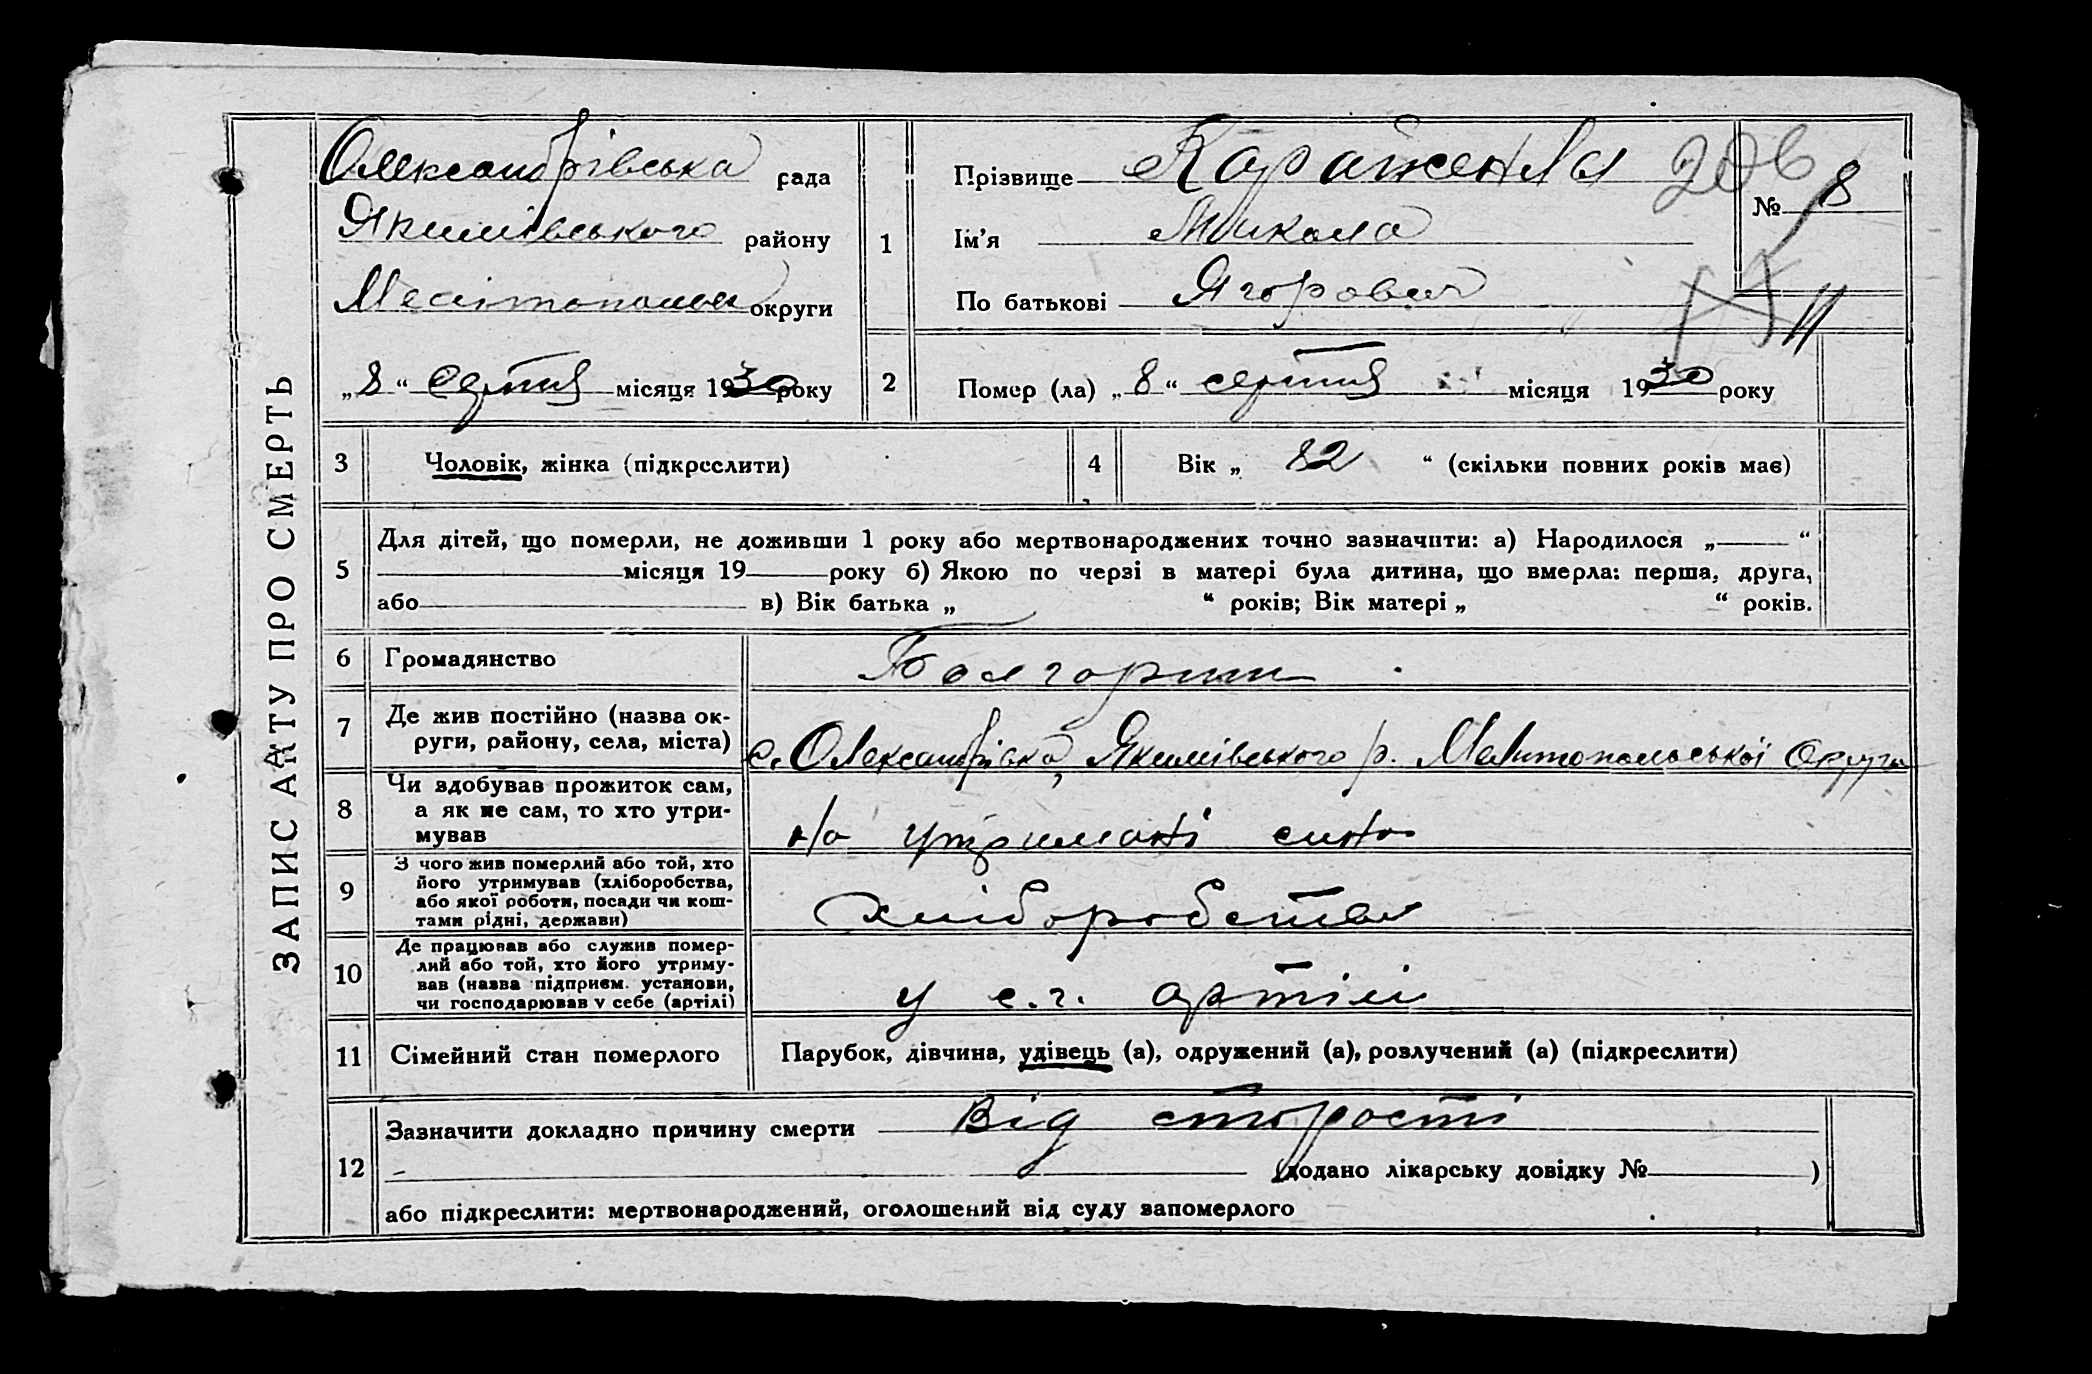 ЗАПИС АКТУ ПРО СМЕРТЬ
Олександрівська рада
Якимівського району
Мелітопольск округи
„8“ серпня місяця 1930 року
1
Прізвище Караженля
206
№ 8
Ім'я Микола
По батькові Ягорович
11
2
Помер (ла) „8“ серпня місяця 1930 року
3
Чоловік, жінка (підкреслити)
4
Вік „ 82 “ (скільки повних років має)
5
Для дітей, що померли, не доживши 1 року або мертвонароджених точно зазначити: а) Народилося „ “
місяця 19 року б) Якою по черзі в матері була дитина, що вмерла: перша, друга,
або в) Вік батька „ “ років; Вік матері „ “ років.
6
Громадянство
Болгорин
7
Де жив постійно (назва ок-
руги, району, села, міста)
с. Олександрівка, Якимівського р. Мелитопольської Округи
8
Чи здобував прожиток сам,
а як не сам, то хто утри-
мував
На утримані сина
9
З чого жив померлий або той, хто
його утримував (хліборобства,
або якої роботи, посади чи кош-
тами рідні, держави)
хліборобства
10
Де працював або служив помер-
лий або той, хто його утриму-
вав (назва підприєм. установи,
чи господарював у себе (артілі)
у с.г. артілі
11
Сімейний стан померлого
Парубок, дівчина, удівець (а), одружений (а), розлучений (а) (підкреслити)
12
Зазначити докладно причину смерти Від старості
(додано лікарську довідку № )
або підкреслити: мертвонароджений, оголошений від суду запомерлого